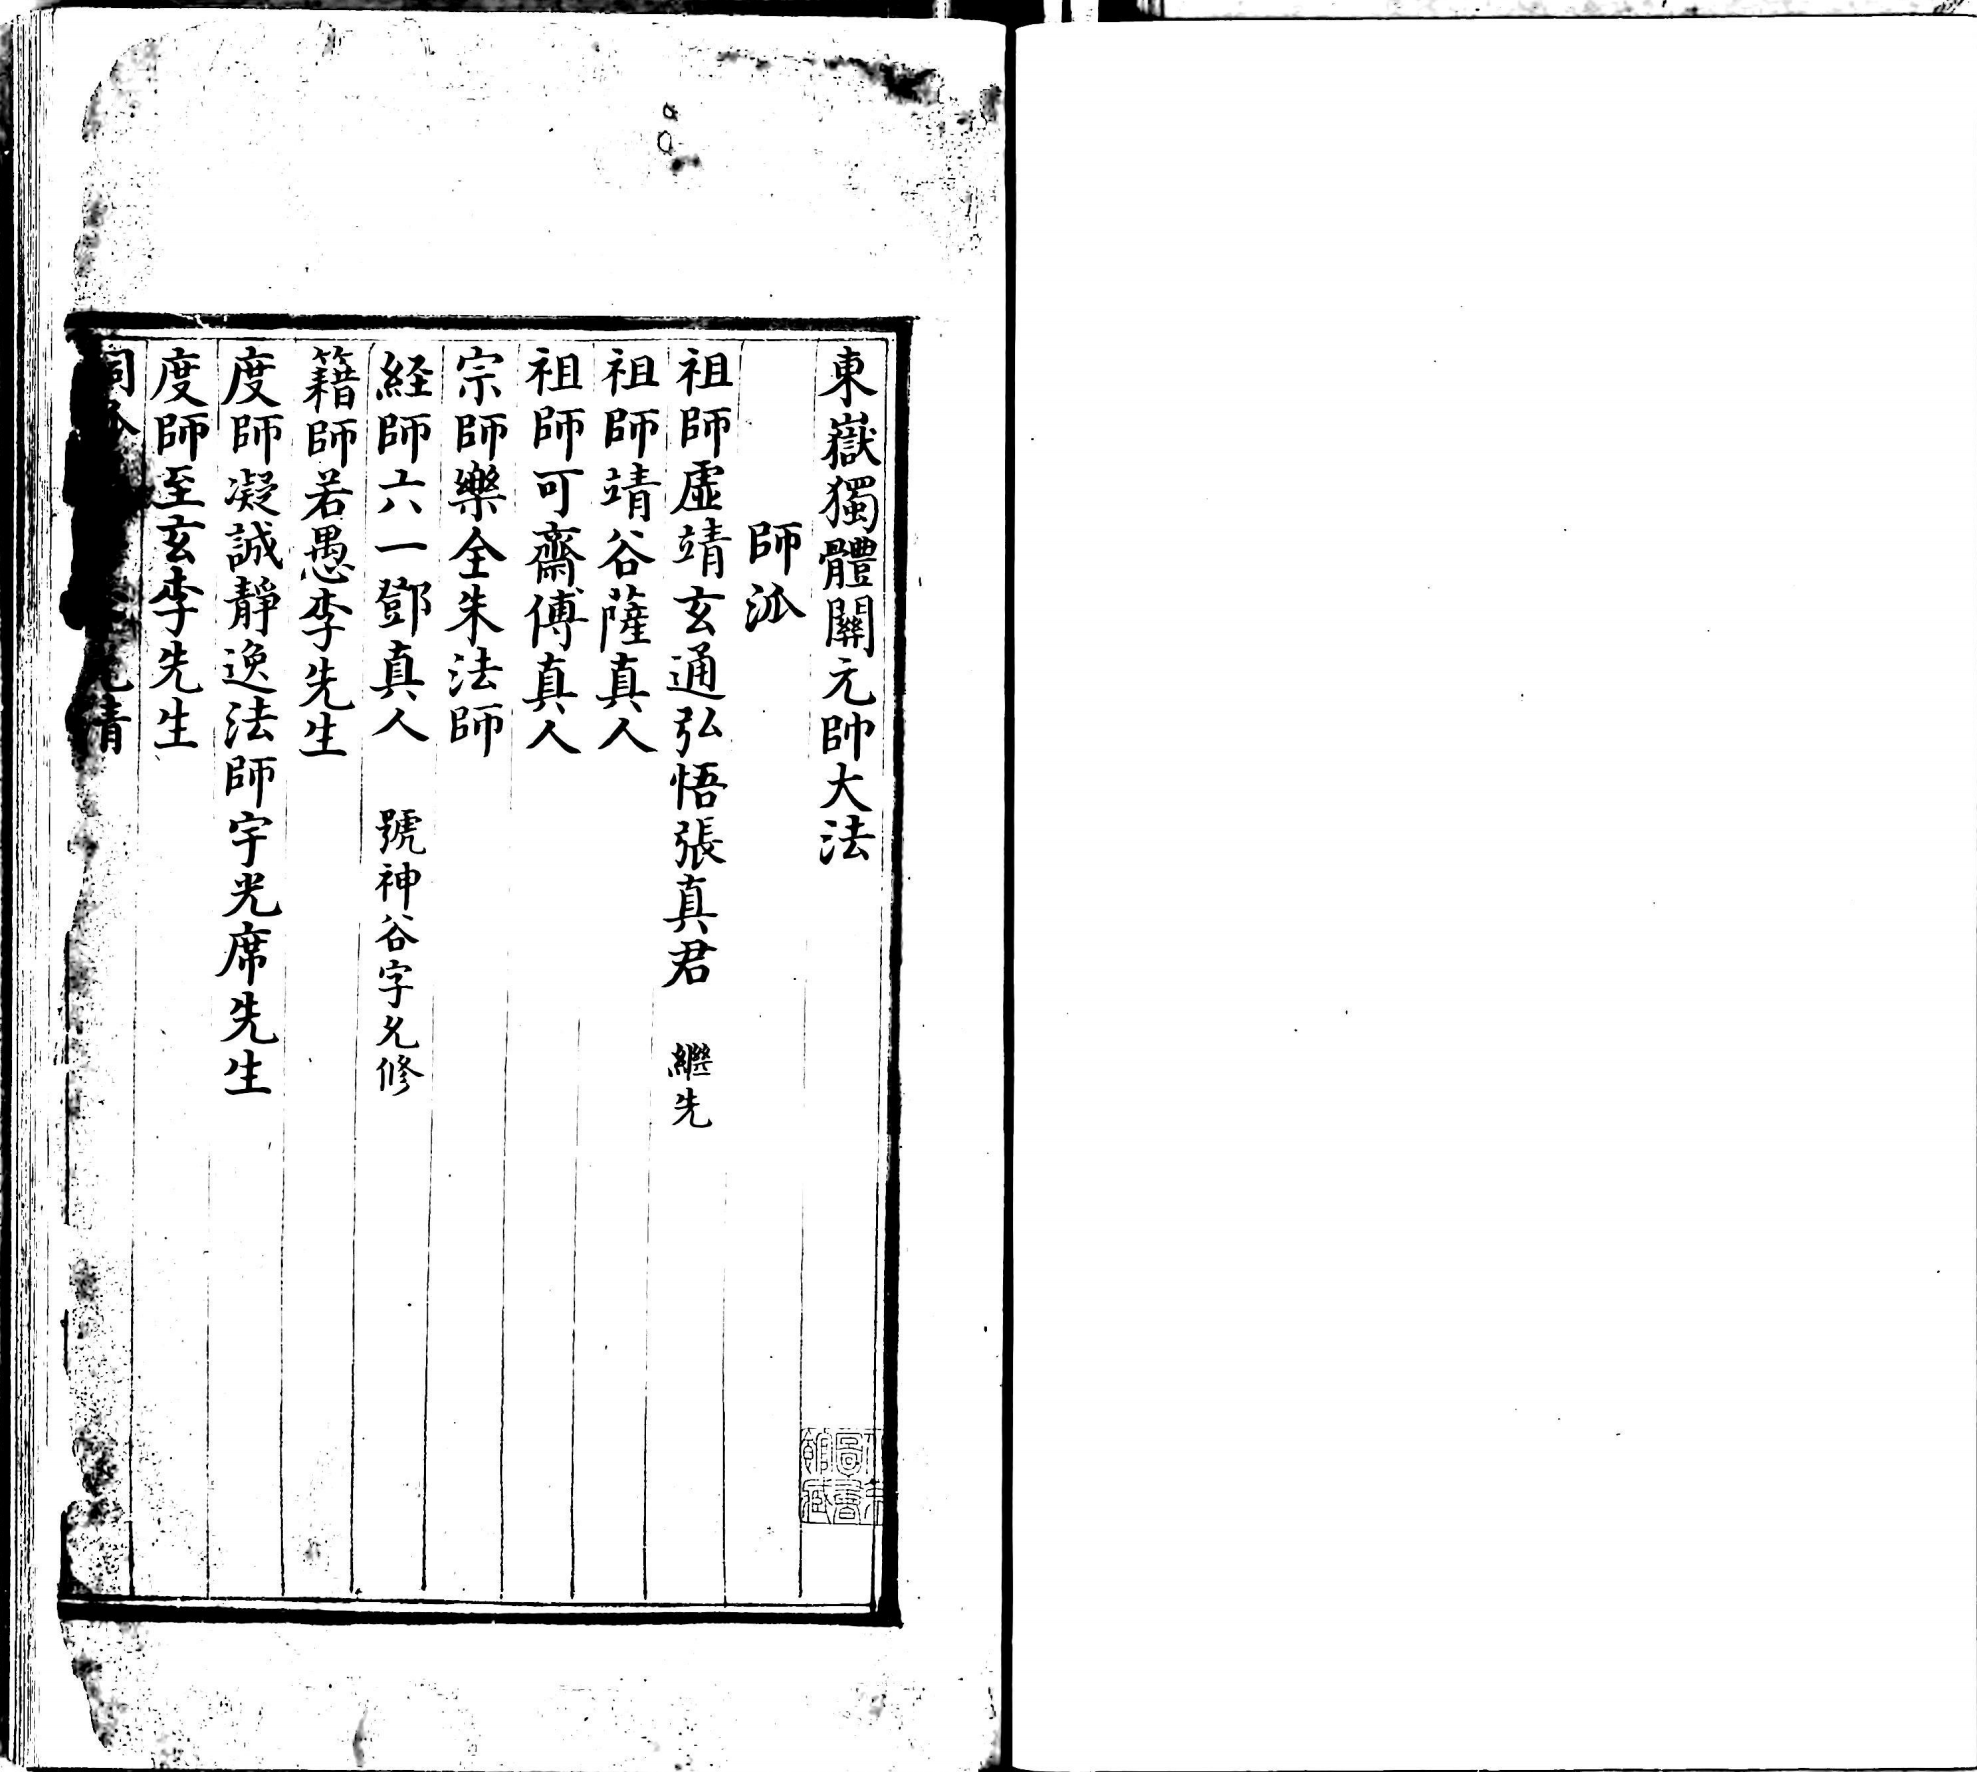 東嶽獨體關元帥大法
師派
祖師虛靖玄通弘悟張真君 繼先
祖師靖谷薩真人
祖師可齋傅真人
宗師樂全朱法師
経師六一鄧真人 號神谷字允修
籍師若愚李先生
度師凝誠靜逸法師宇光席先生
度師至玄李先生
嗣 清
圖書
館藏